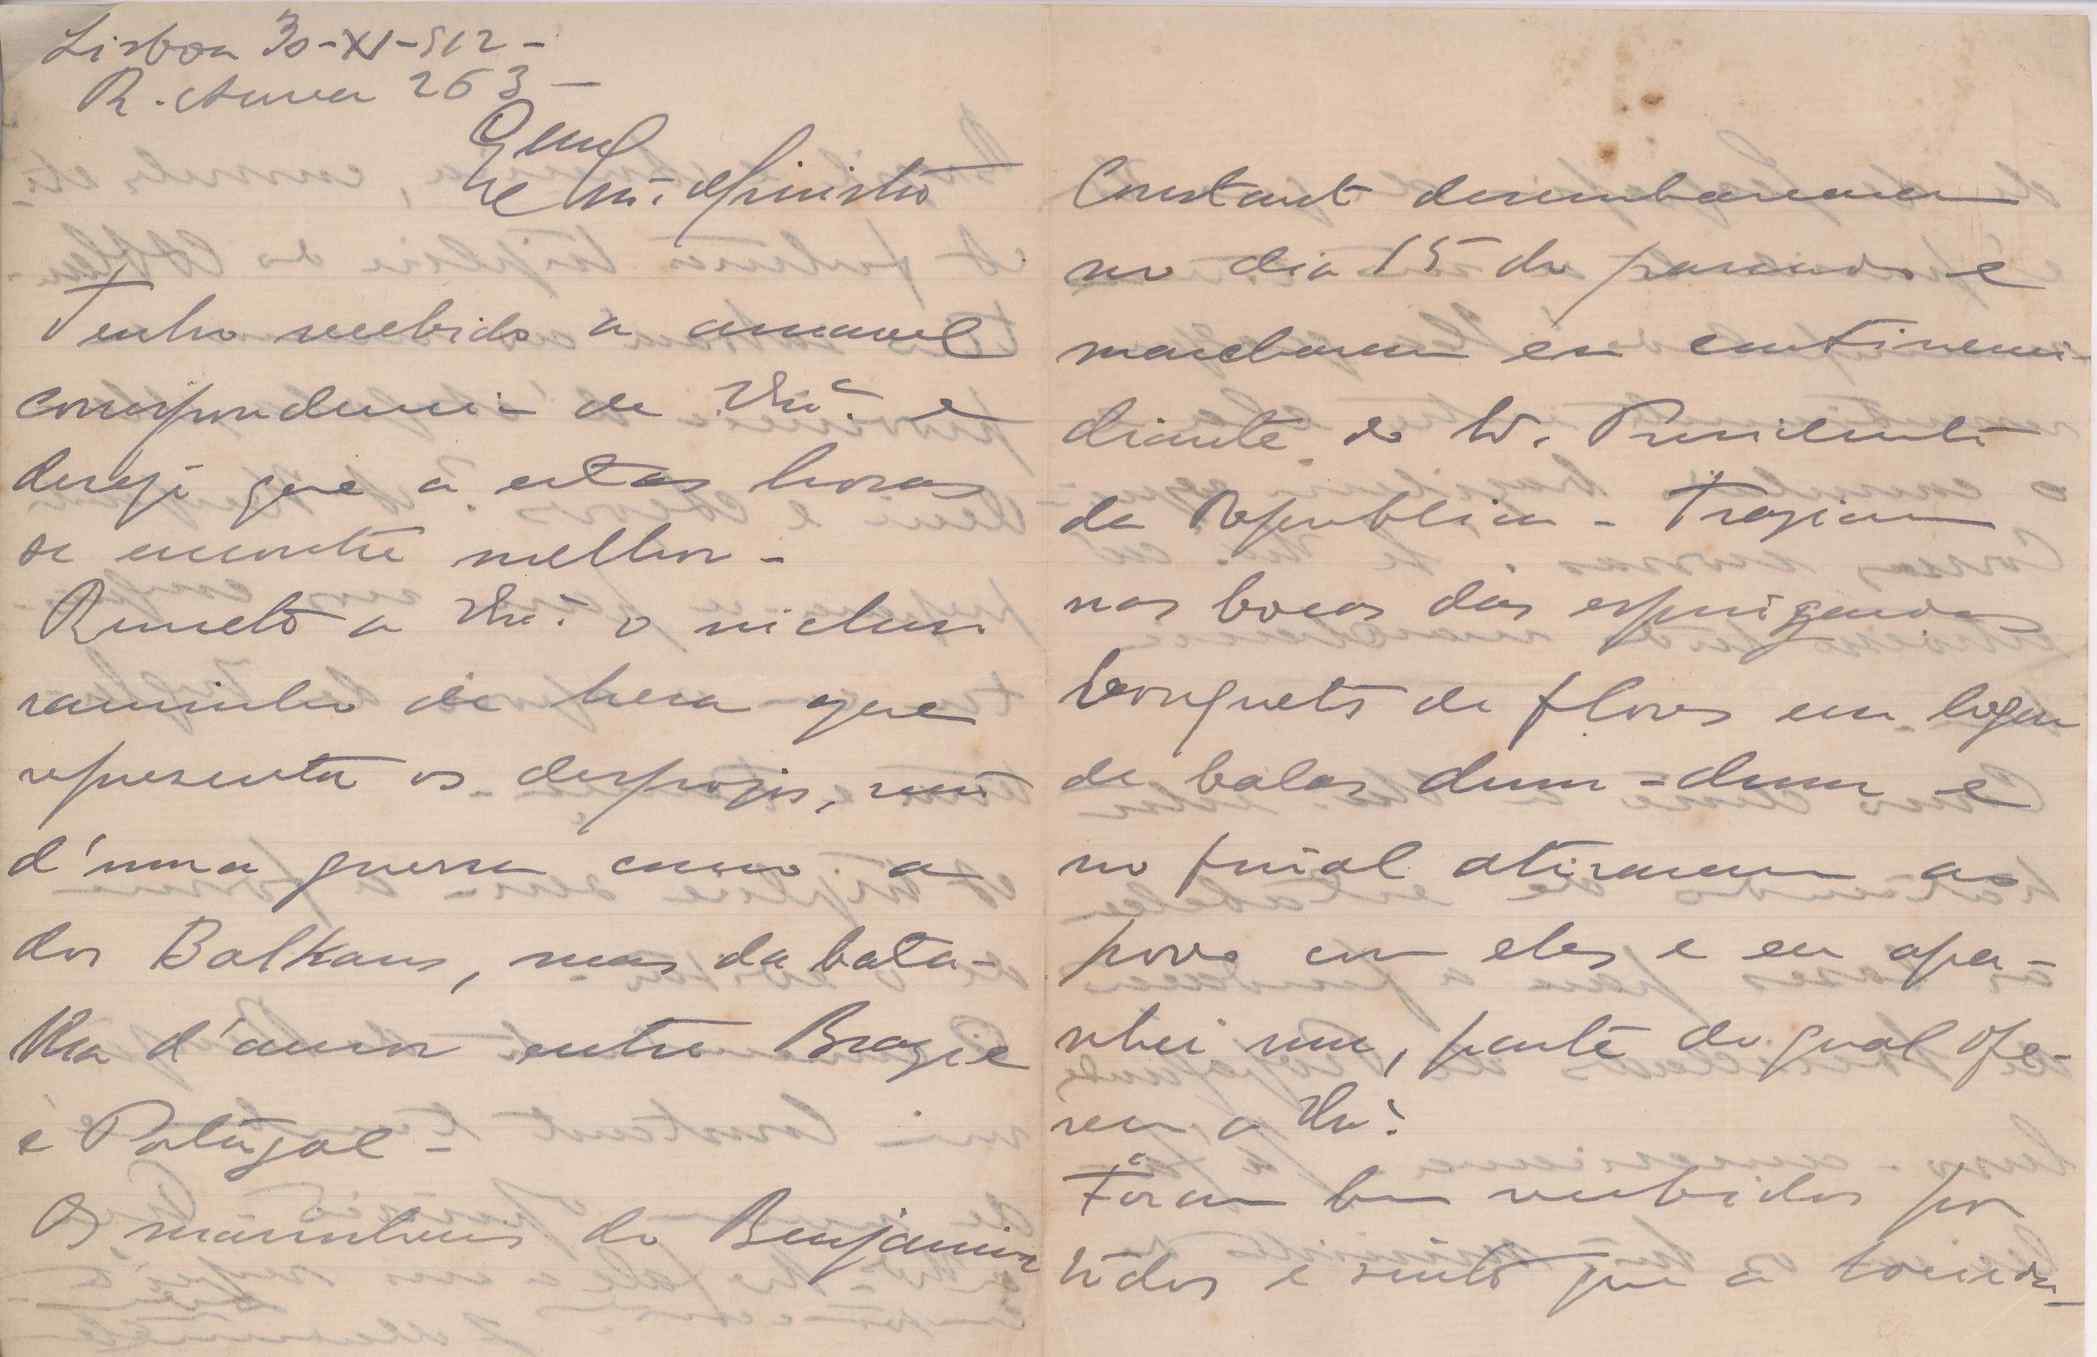 Lisboa 30-XI-912-
R. Aurea 263-
Exmo
Sr. Ministro
Tenho recebido a amavel
correspondencia de V.Exª. e
desejo que a estas horas
se encontre melhor-
Remeto a V.Exª. o incluso
raminho de hera que
representa os despojos, não
d'uma guerra como a
dos Balkans, mas da bata-
lha d'amor entre Brazil
e Portugal-
Os marinheiros do Benjamin
Constant desembarcaram
no dia 15 do passado e
marcharam em continencia
diante do Sr. Presidente
da Republica- Traziam
nas bocas das espingardas
bouquets de flores em logar
de balas dum-dum e
no final atiraram ao
povo com eles e eu apa-
nhei um, parte do qual ofe-
reço a V.Exª.
Fôram bem recebidos por
tôdos e sinto que a